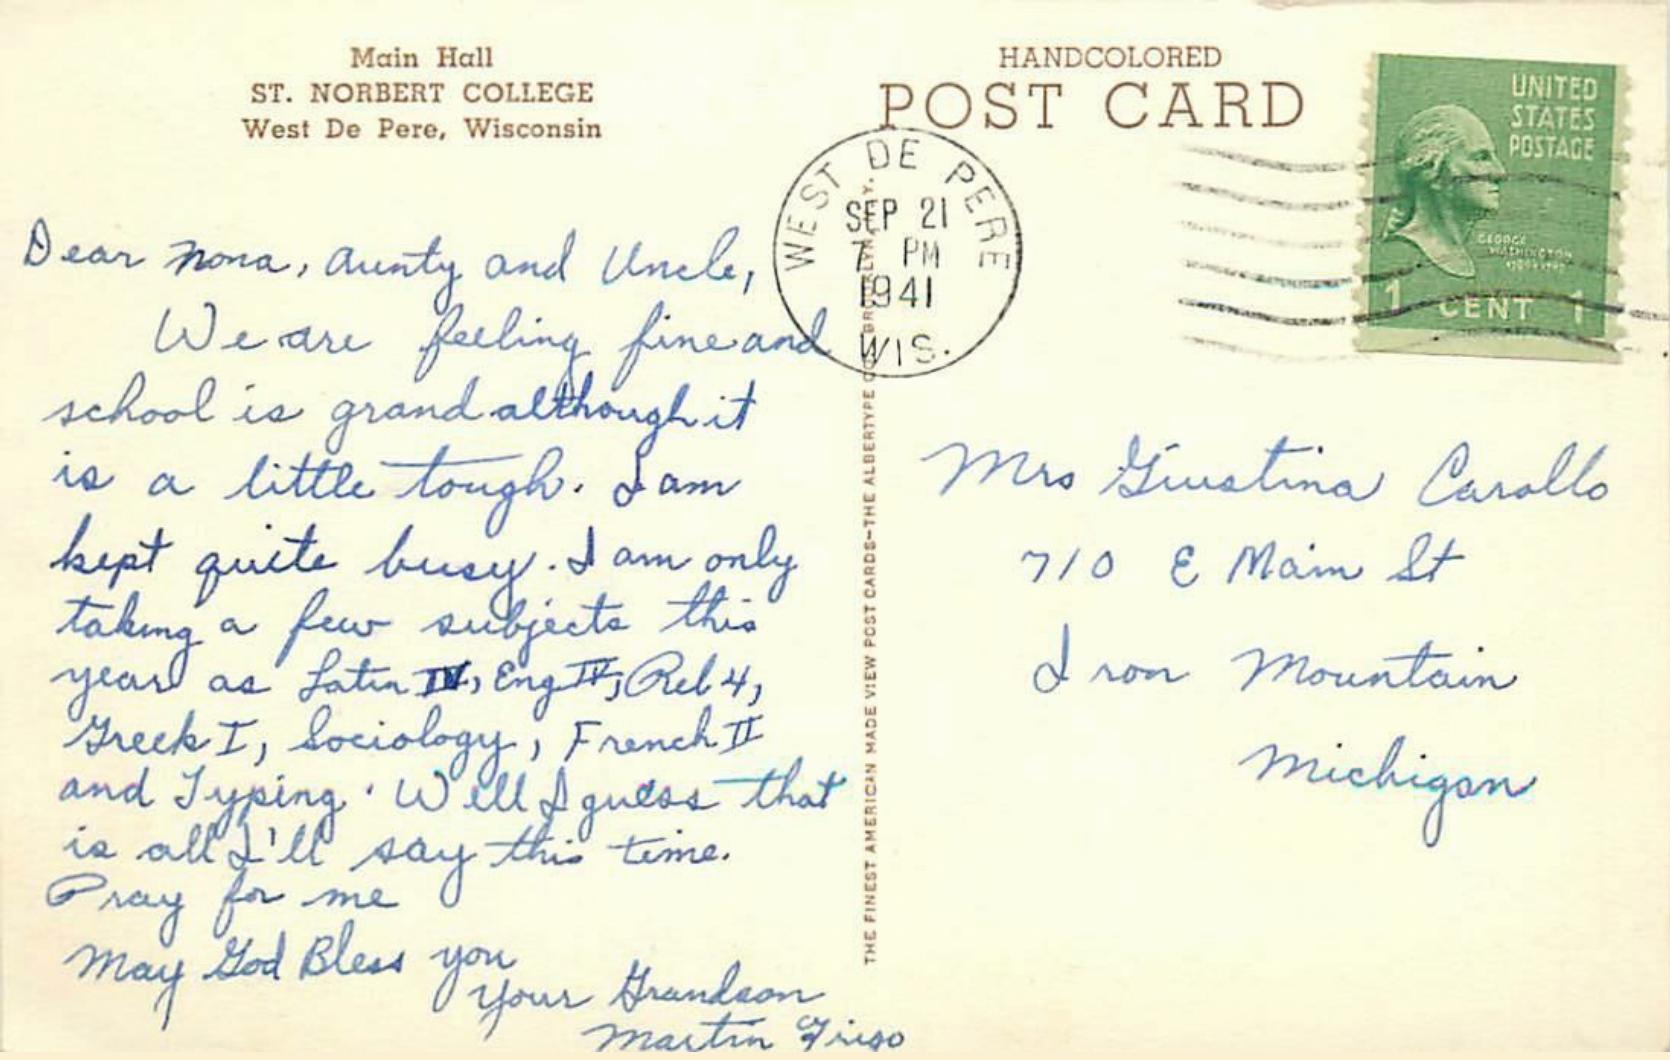 Main Hall
ST. NORBERT COLLEGE
West De Pere, Wisconsin
HANDCOLORED
POST CARD
UNITED
STATES
POSTAGE
GEORGE
WASHINGTON
1 CENT 1
WEST DE PERE
SEP 21
7 PM
1941
WIS.
Dear Nona, Aunty and Uncle,
We are feeling fine and
school is grand although it
is a little tough. I am
kept quite busy. I am only
taking a few subjects this
year as Latin IV, Eng IV, Rel 4,
Greek I, Sociology, French II
and Typing. Well I guess that
is all I'll say this time.
Pray for me
May God Bless you
Your Grandson
Martin Friso
THE FINEST AMERICAN MADE VIEW POST CARDS—THE ALBERTYPE CO., BROOKLYN, N.Y.
Mrs Giustina Carollo
710 E Main St
Iron Mountain
Michigan